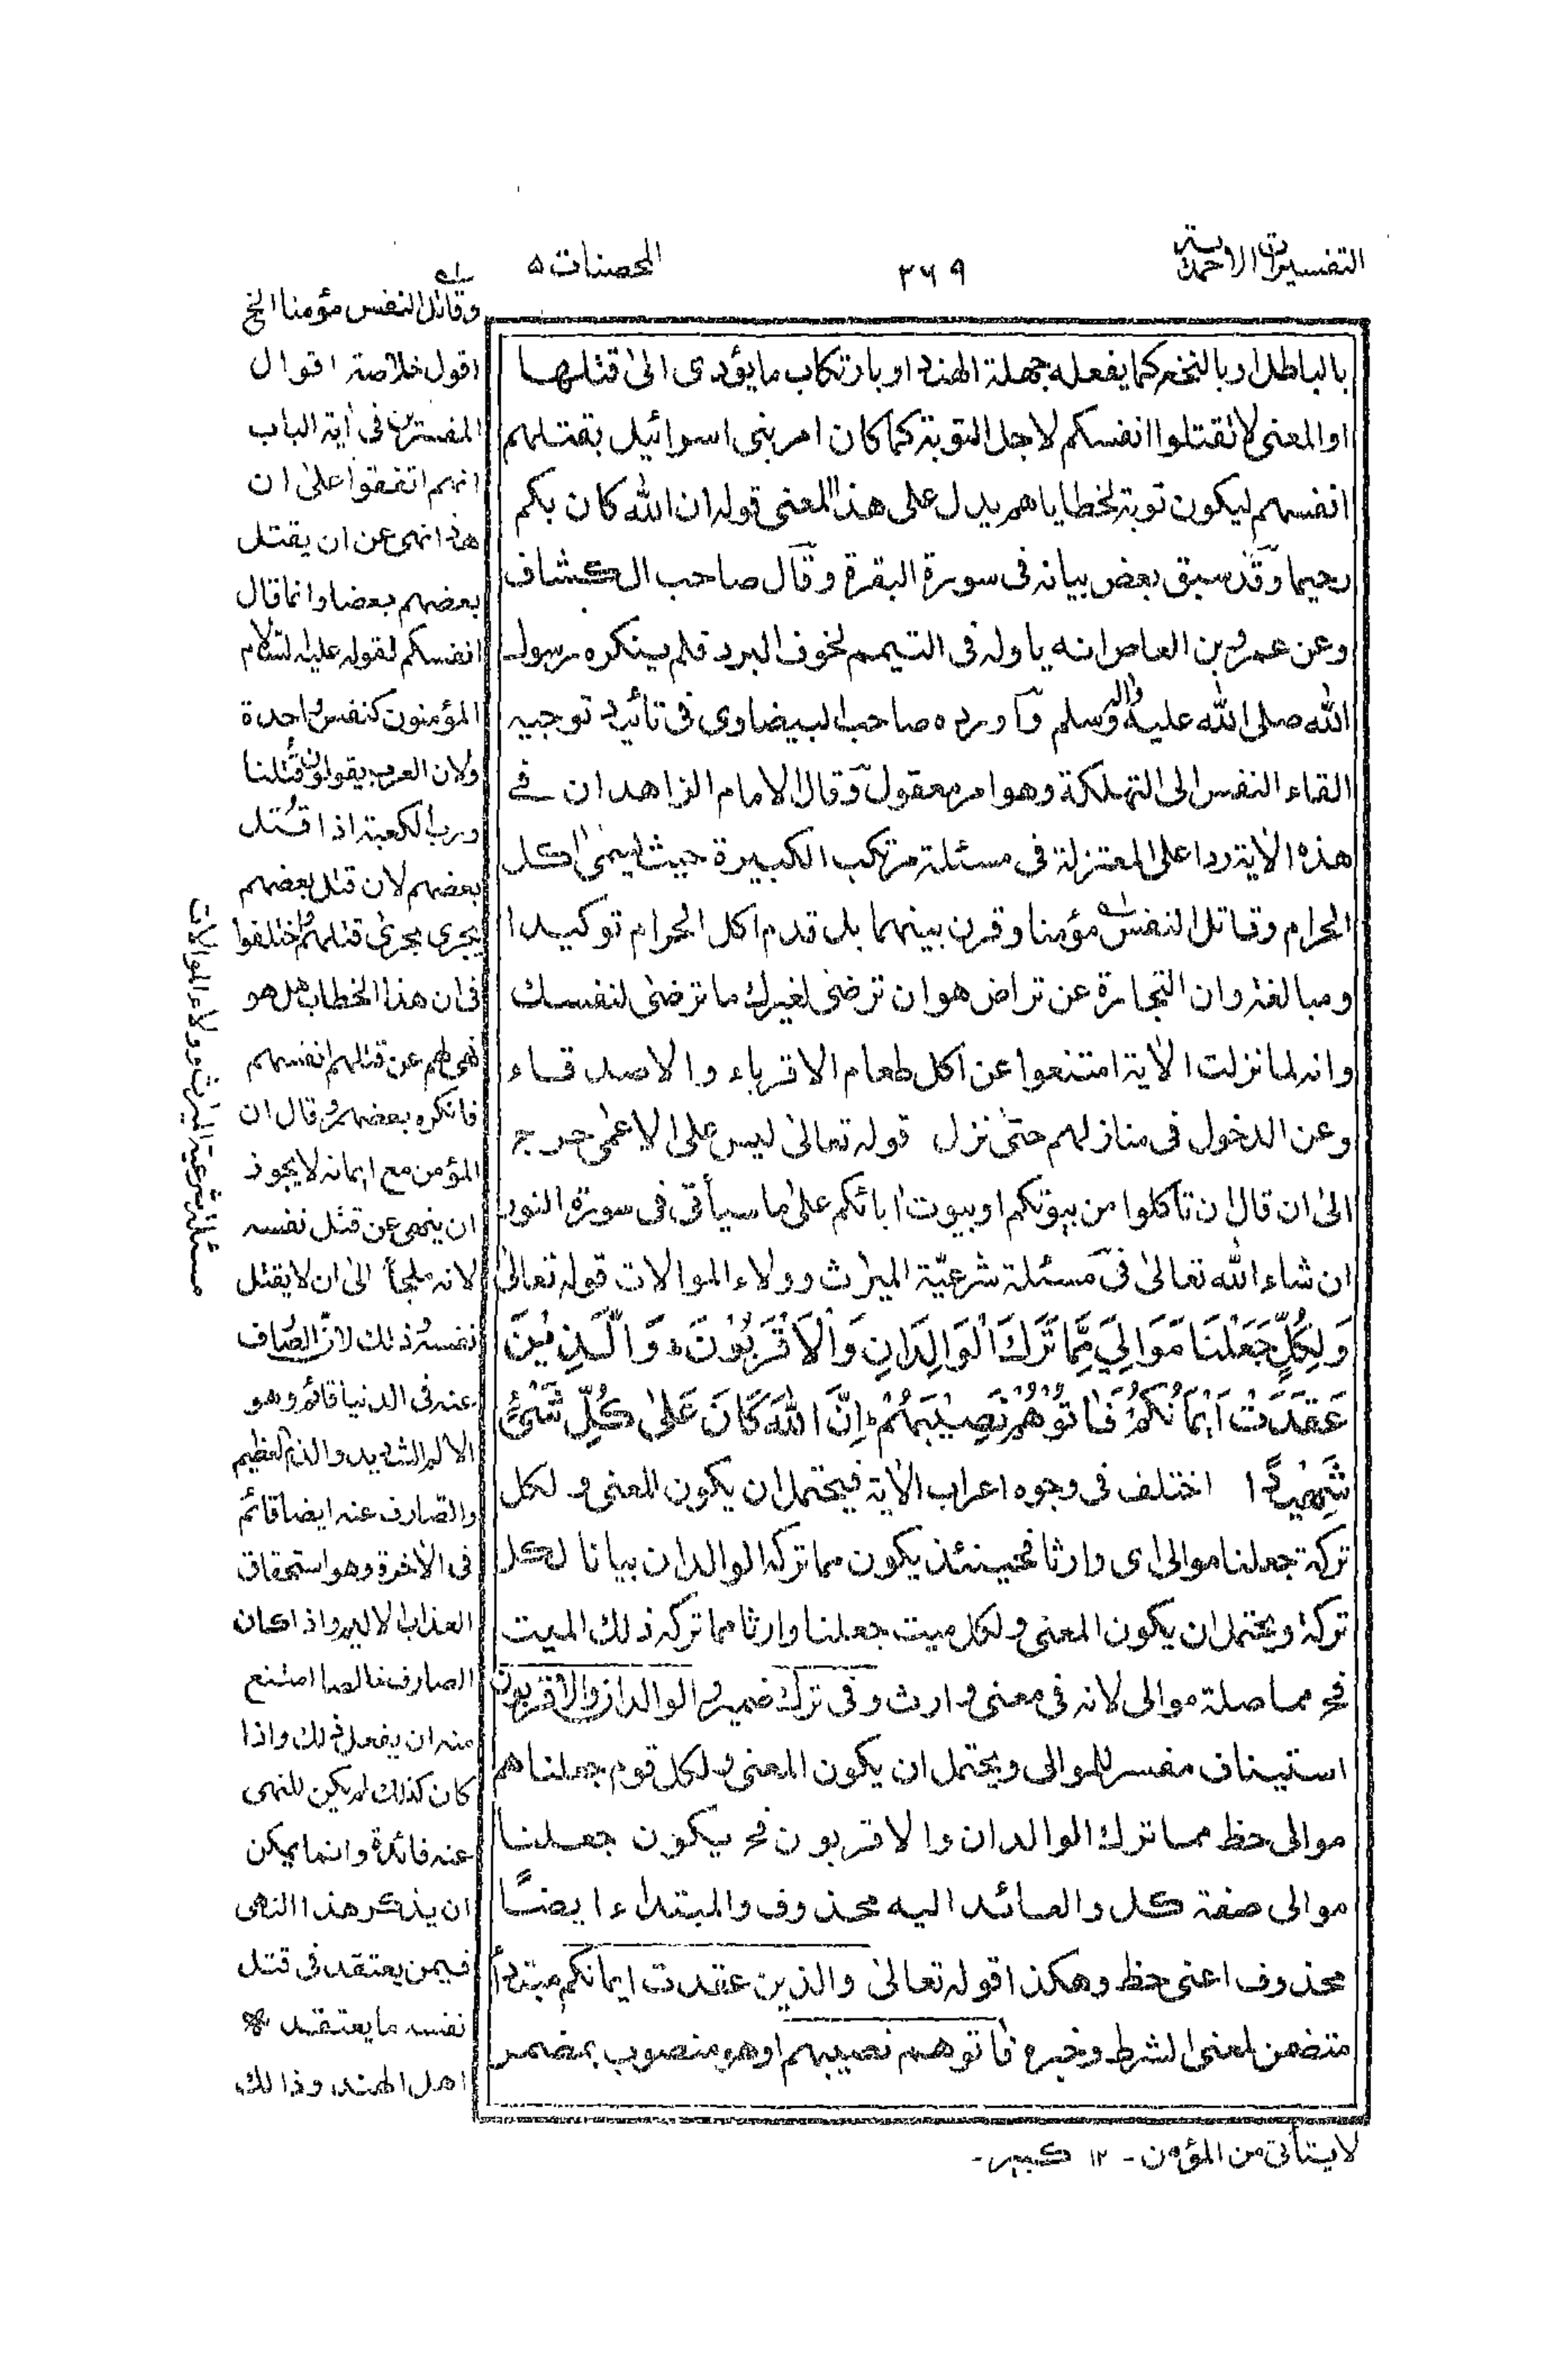 التفسيرات الاحمدية
٣٦٩
المحصنات ٥
بالباطل او بالنخع كما يفعله جهلة الهند او بارتكاب ما يؤدى الىٰ قتلها
او المعنى لا تقتلوا انفسكم لاجل التوبة كما كان امر بنى اسرائيل بقتلهم
انفسهم ليكون توبة لخطاياهم يدل على هذا المعنى قوله ان الله كان بكم
رحيما وقد سبق بعض بيانه فى سورة البقرة وقال صاحب الكشاف
وعن عمرو بن العاص انه ياوله فى التيمم لخوف البرد فلم ينكره رسول
الله صلى الله عليه واله وسلم واورده صاحب البيضاوى فى تأئيد توجيه
القاء النفس الى التهلكة وهو امر معقول وقال الامام الزاهد ان فے
هذه الاٰية ردا على المعتزلة فى مسئلة مرتكب الكبيرة حيث يسمىٰ اكل
الحرام وقاتل النفس مؤمنا وقرن بينهما بل قدم اكل الحرام توكيدا
ومبالغة وان التجارة عن تراض هو ان ترضىٰ لغيرك ما ترضىٰ لنفسك
وانه لما نزلت الاٰية امتنعوا عن اكل طعام الاقرباء والاصدقاء
وعن الدخول فى منازلهم حتىٰ نزل قوله تعالىٰ ليس على الاعمٰى حرج
الىٰ ان قال ان تاكلوا من بيوتكم او بيوت اٰبائكم علىٰ ما سيأتى فى سورة النور
ان شاء الله تعالىٰ فى مسئلة شرعيّة الميراث وولاء الموالات قوله تعالىٰ
وَلِكُلٍّ جَعَلْنَا مَوَالِيَ مِمَّا تَرَكَ الْوَالِدَانِ وَالْاَقْرَبُوْنَ وَالَّذِيْنَ
عَقَدَتْ اَيْمَانُكُمْ فَاٰتُوْهُمْ نَصِيْبَهُمْ اِنَّ اللهَ كَانَ عَلىٰ كُلِّ شَىْءٍ
شَهِيْدًا اختلف فى وجوه اعراب الاٰية فيحتمل ان يكون المعنى ولكل
تركة جعلنا موالى اى وارثا فحينئذ يكون مما تركه الوالدان بيانا لكل
تركة ويحتمل ان يكون المعنى ولكل ميت جعلنا وارثا مما تركه ذلك الميت
فح مما صلة موالى لانه فى معنى وارث وفى ترك ضمير والوالدان والاقربون
استيناف مفسر للموالى ويحتمل ان يكون المعنى ولكل قوم جعلناهم
موالى حظ مما ترك الوالدان والاقربون فح يكون جعلنا
موالى صفة كل والعائد اليه محذوف والمبتداء ايضًا
محذوف اعنى حظ وهكذا قوله تعالىٰ والذين عقدت ايمانكم مبتدأ
متضمن لمعنى الشرط وخبره فاٰتوهم نصيبهم او هو منصوب بمضمر
وقاتل النفس مؤمنا الخ
اقول خلاصة اقوال
المفسرين فى اٰية الباب
انهم اتفقوا علىٰ ان
هذا نهى عن ان يقتل
بعضهم بعضا وانما قال
انفسكم لقوله عليه السلام
المؤمنون كنفس واحدة
ولان العرب يقولون قُتلنا
ورب الكعبة اذا قُتل
بعضهم لان قتل بعضهم
يجرى مجرى قتلهم واختلفوا
فى ان هذا الخطاب هل هو
نهى لهم عن قتلهم انفسهم
فانكره بعضهم وقال ان
المؤمن مع ايمانه لا يجوز
ان ينهى عن قتل نفسه
لانه ملجأ الىٰ ان لا يقتل
نفسه وذلك لان الصارف
عنه فى الدنيا قائم وهو
الالم الشديد والذم العظيم
والصارف عنه ايضا قائم
فى الاٰخرة وهو استحقاق
العذاب الاليم واذا كان
الصارف خالصا امتنع
منه ان يفعل ذلك واذا
كان كذلك لم يكن للنهى
عنه فائدة وانما يمكن
ان يذكر هذا النهى
فيمن يعتقد فى قتل
نفسه ما يعتقده
اهل الهند وذالك
لا يتأتى من المؤمن - ١٢ كبير -
مسئلة شرعية الميراث وولاء الموالات